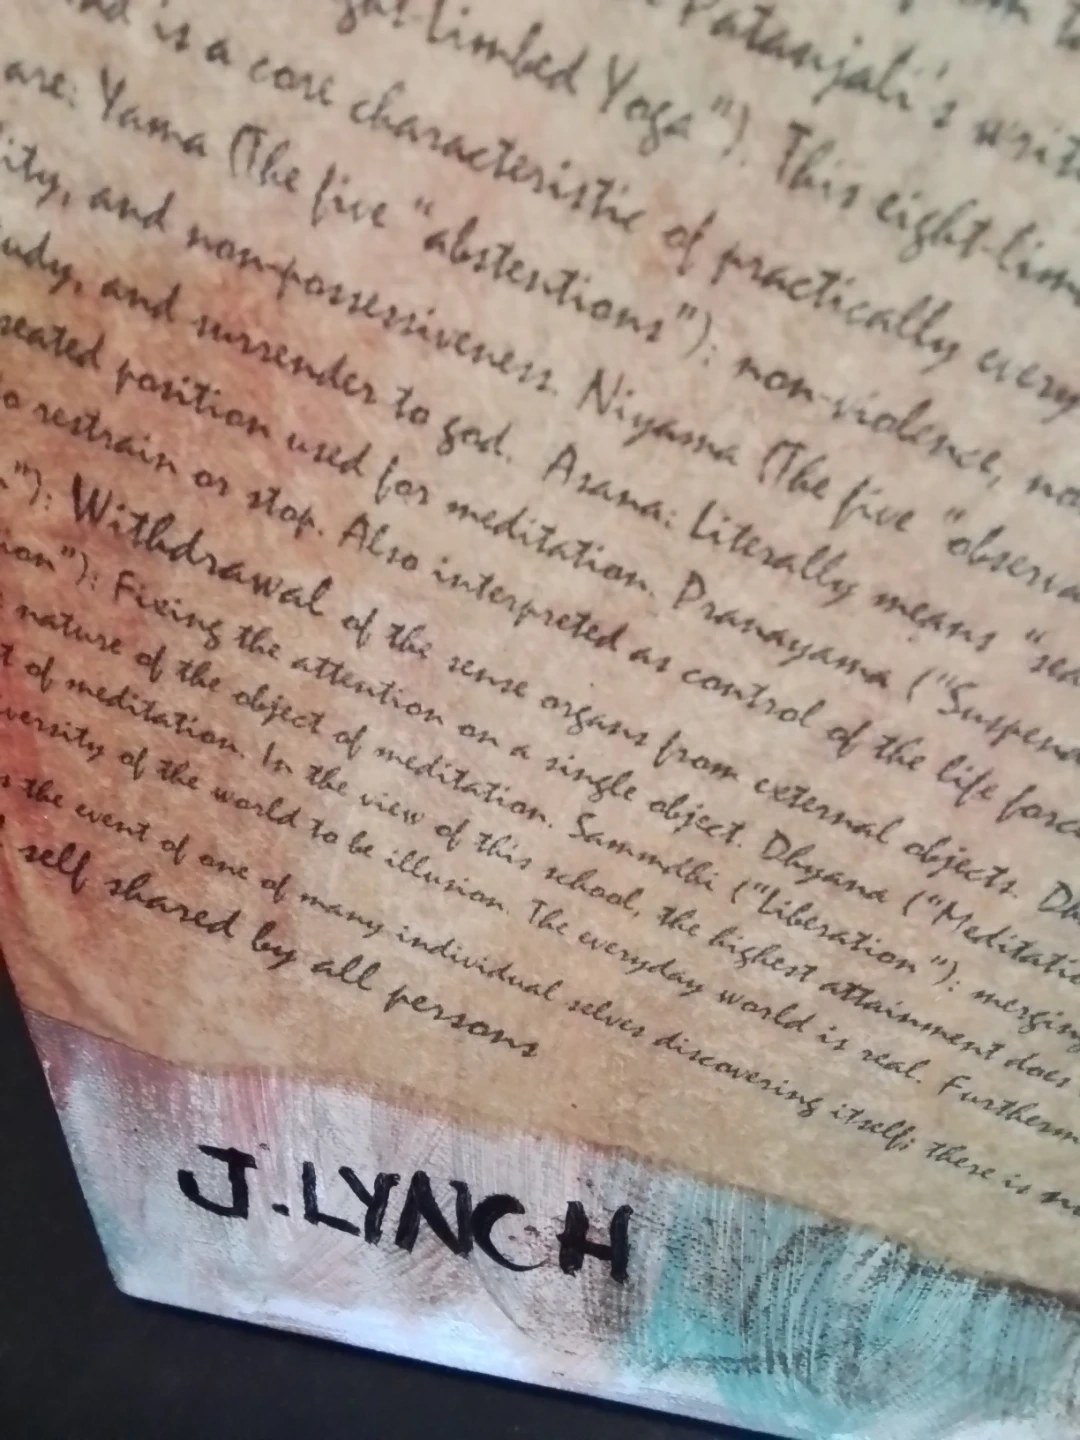 Patanjali's writ
ght-limbed Yoga"). This eight-lim
is a core characteristic of practically every
are: Yama (The five "abstentions"): non-violence, no
ity, and non-possessiveness. Niyama (The five "observa
udy, and surrender to god. Asana: Literally means "sea
seated position used for meditation. Pranayama ("Suspen
o restrain or stop. Also interpreted as control of the life force
"): Withdrawal of the sense organs from external objects. Dh
ion"): Fixing the attention on a single object. Dhyana ("Meditatio
nature of the object of meditation. Sammdhi ("Liberation"): merging
t of meditation. In the view of this school, the highest attainment does
versity of the world to be illusion. The everyday world is real. Furtherm
s the event of one of many individual selves discovering itself; there is
self shared by all persons
J. LYNCH